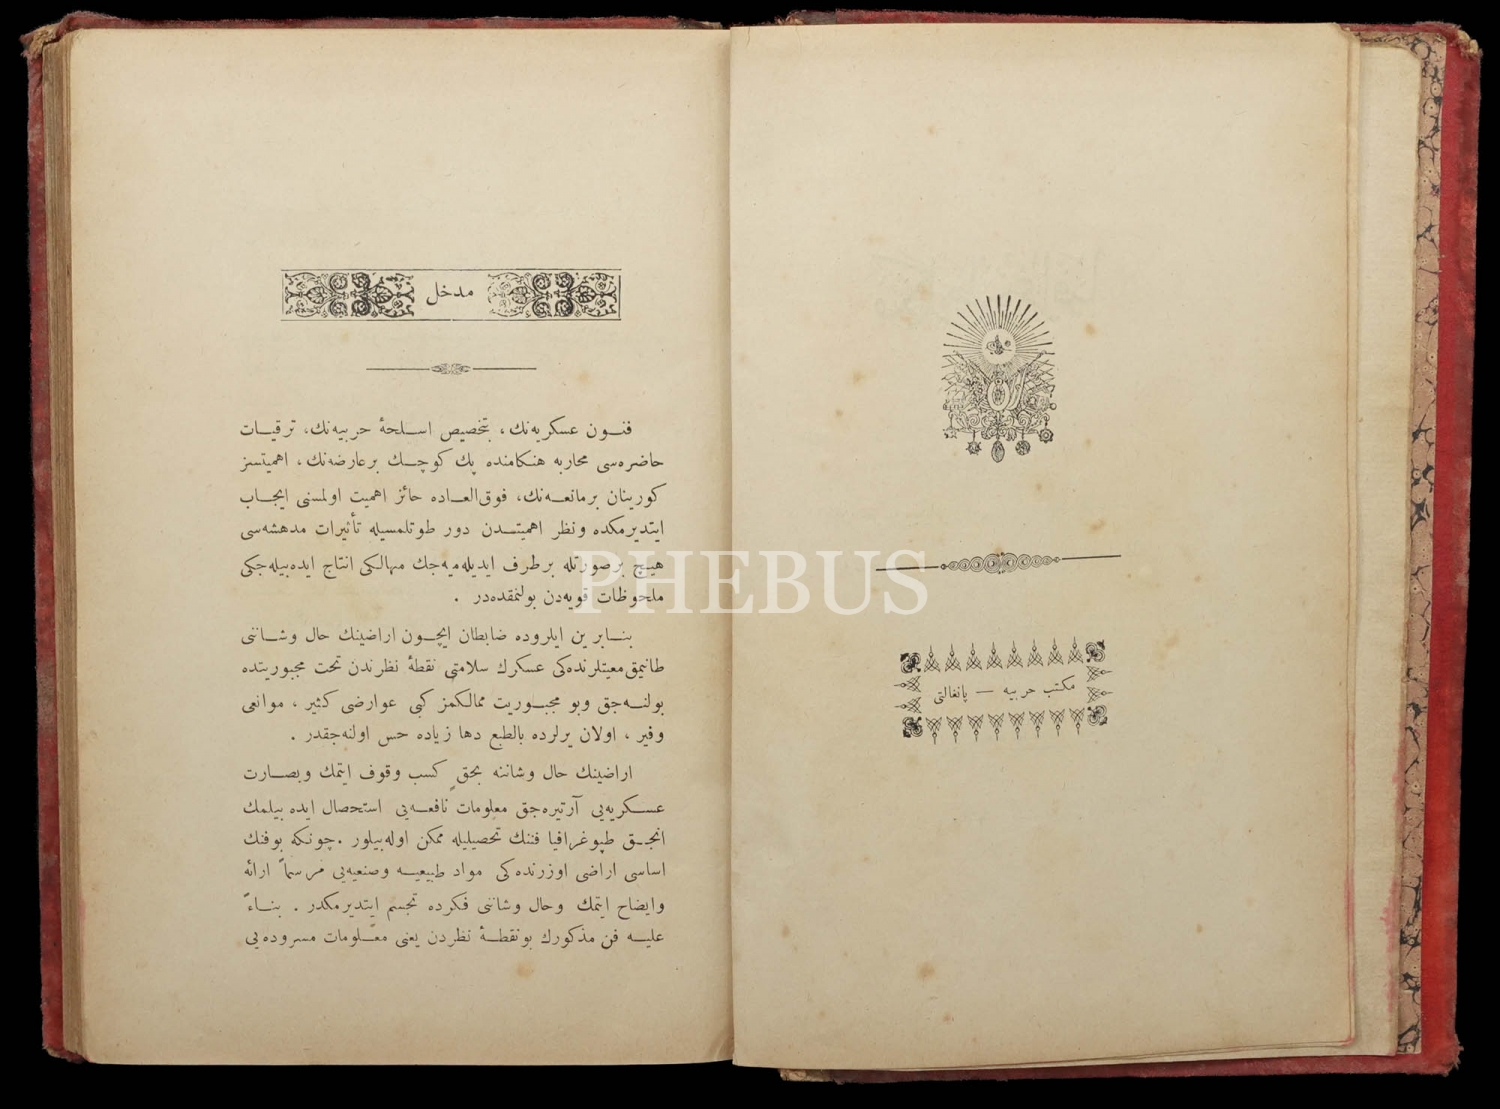 مكتب حربیه — پانغالتی
مدخل
فنــون عسكریه‌نك ، بتخصیص اسـلحهٔ حربیه‌نك، ترقیـات
حاضره‌سی محاربه هنكامنده پك كوچـك برعارضه‌نك ، اهمیتسز
كورینان برمانعــه‌نك، فوق‌العـاده حائز اهمیت اولمسنی ایجـاب
ایتدیرمكده ونظر اهمیتـدن دور طوتلمسیله تأثیرات مدهشه‌سی
هیـچ برصورتله برطرف ایدیله‌میه‌جك مهالكی انتاج ایده‌بیله‌جكی
ملحوظات قویه‌دن بولنمقده‌در .
بنـابرین ایلروده ضابطان ایچـون اراضینك حال وشـاننی
طانیمق معیتلرنده‌كی عسكرك سلامتی نقطهٔ نظرندن تحت مجبوریتده
بولنـه‌جق وبو مجبـوریت ممالكمز كبی عوارضی كثیر ، موانعی
وفیر ، اولان یرلرده بالطبع دها زیاده حس اولنه‌جقدر .
اراضینك حال وشاننه بحق كسب وقوف ایتمك وبصـارت
عسـكریه‌یی آرتیره‌جق معلومات نافعـه‌یی استحصال ایده بیلمك
انجـق طپوغرافیا فننك تحصیلیله ممكن اوله‌بیلور . چونكه بوفنك
اساسی اراضی اوزرنده‌كی مواد طبیعیـه وصنعیه‌یی مرسماً ارائه
وایضاح ایتمك وحال وشاننی فكرده تجسم ایتدیرمكدر . بنـاءً
علیـه فن مذكورك بونقطـهٔ نظردن یعنی معـلومات مسروده‌یی
PHEBUS